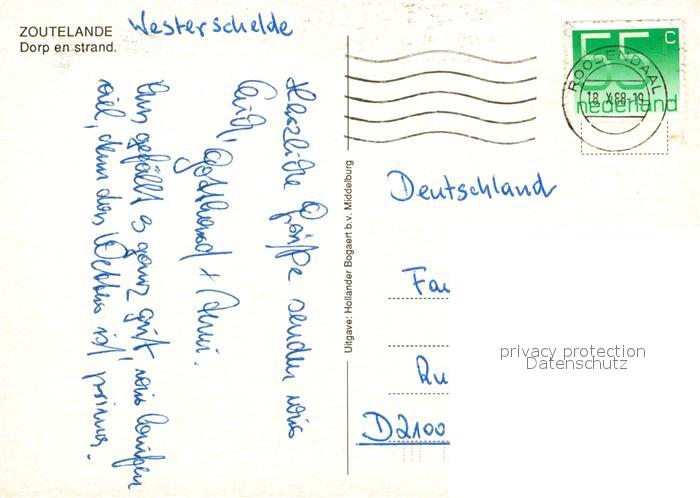 ZOUTELANDE
Dorp en strand.
Westerschelde
Herzliche Grüße senden wir
Euch,
Gotthard +
Uns gefällt es ganz gut, wir laufen
viel, denn das Wetter ist prima.
Uitgave: Hollander Bogaert b.v. Middelburg
55 c
nederland
ROOSENDAAL
18 X 88-19
Deutschland
Fa
Ru
D2100
privacy protection
Datenschutz